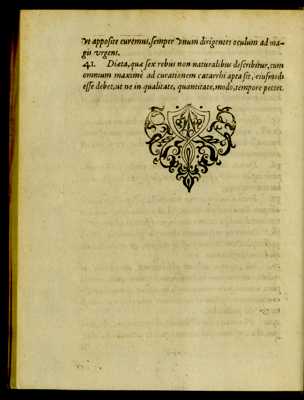 vt apposite curemus, semper vnum dirigentes oculum ad ma-
gis vrgens.
41. Diæta, quæ sex rebus non naturalibus describitur, cum
omnium maximè ad curationem catarrhi apta sit, eiusmodi
esse debet, ut ne in qualitate, quantitate, modo, tempore peccet.